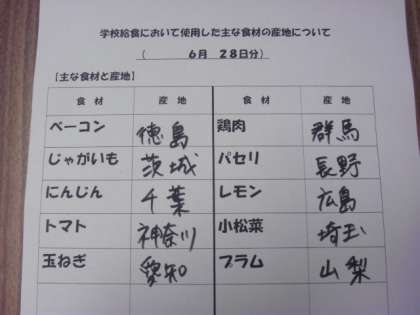 学校給食において使用した主な食材の産地について
( 6月 28日分)
【主な食材と産地】
食材 産地 食材 産地
ベーコン 徳島 鶏肉 群馬
じゃがいも 茨城 パセリ 長野
にんじん 千葉 レモン 広島
トマト 神奈川 小松菜 埼玉
玉ねぎ 愛知 プラム 山梨